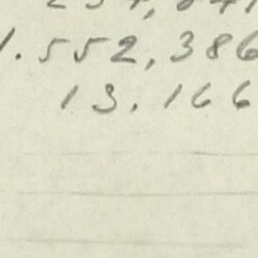 1.552,386
13.166